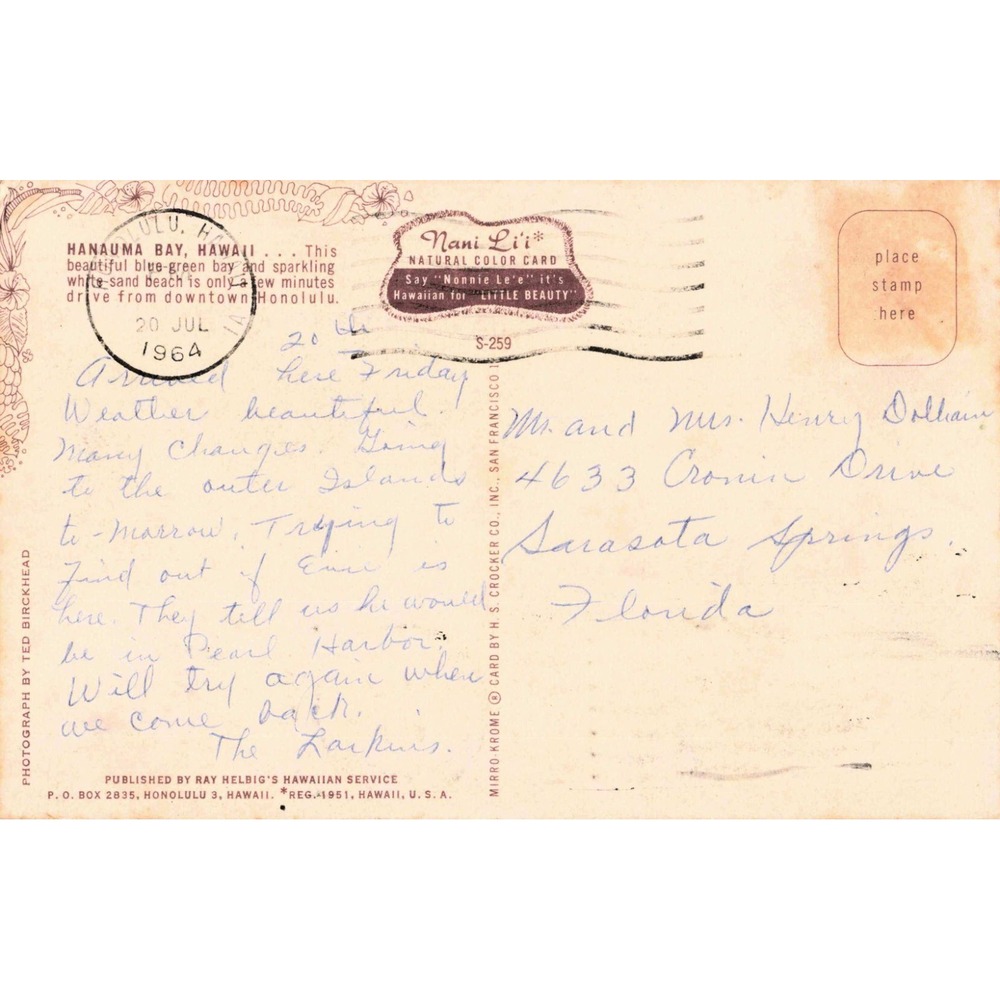 HANAUMA BAY, HAWAII . . . . This
beautiful blue-green bay and sparkling
white sand beach is only a few minutes
drive from downtown Honolulu.
HONOLULU, HAWAII
20 JUL
1964
Nani Li'i*
NATURAL COLOR CARD
Say "Nonnie Le'e" it's
Hawaiian for "LITTLE BEAUTY"
S-259
place
stamp
here
20th
Arrived here Friday
Weather beautiful.
Many Changes. Going
to the outer Islands
to-morrow. Trying to
find out if is
here. They tell us he would
be in Pearl Harbor.
Will try again when
we come back.
The Larkins.
Mr. and Mrs. Henry
4633 Cronin Drive
Sarasota Springs.
Florida
PHOTOGRAPH BY TED BIRCKHEAD
MIRRO-KROME ® CARD BY H. S. CROCKER CO., INC., SAN FRANCISCO 1
PUBLISHED BY RAY HELBIG'S HAWAIIAN SERVICE
P. O. BOX 2835, HONOLULU 3, HAWAII. *REG. 1951, HAWAII, U. S. A.